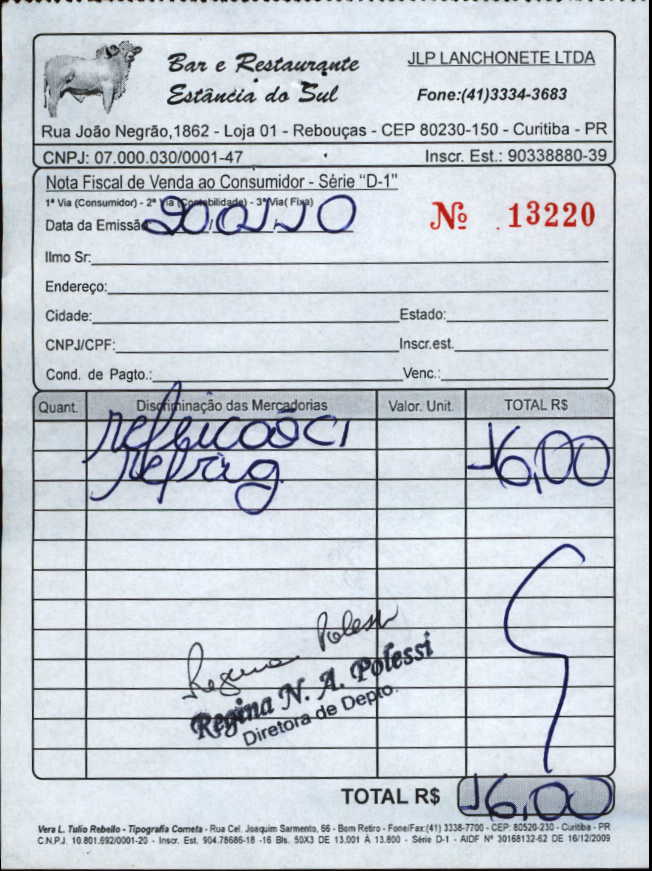 Bar e Restaurante
Estância do Sul
JLP LANCHONETE LTDA
Fone:(41)3334-3683
Rua João Negrão,1862 - Loja 01 - Rebouças - CEP 80230-150 - Curitiba - PR
CNPJ: 07.000.030/0001-47 Inscr. Est.: 90338880-39
Nota Fiscal de Venda ao Consumidor - Série "D-1"
1ª Via (Consumidor) - 2ª Via (Contabilidade) - 3ª Via( Fixa)
Nº 13220
Data da Emissão
Ilmo Sr:
Endereço:
Cidade: Estado:
CNPJ/CPF: Inscr.est.
Cond. de Pagto.: Venc.:
Quant. Discriminação das Mercadorias Valor. Unit. TOTAL R$
refeição c/ 16,00
refrig
Regina Polessi
Regina N. A. Polessi
Diretora de Depto.
TOTAL R$ 16,00
Vera L. Tulio Rebello - Tipografia Cometa - Rua Cel. Joaquim Sarmento, 56 - Bom Retiro - Fone/Fax:(41) 3338-7700 - CEP: 80520-230 - Curitiba - PR
C.N.P.J. 10.801.692/0001-20 - Inscr. Est. 904.78686-18 -16 Bls. 50X3 DE 13.001 À 13.800 - Série D-1 - AIDF Nº 30168132-62 DE 16/12/2009